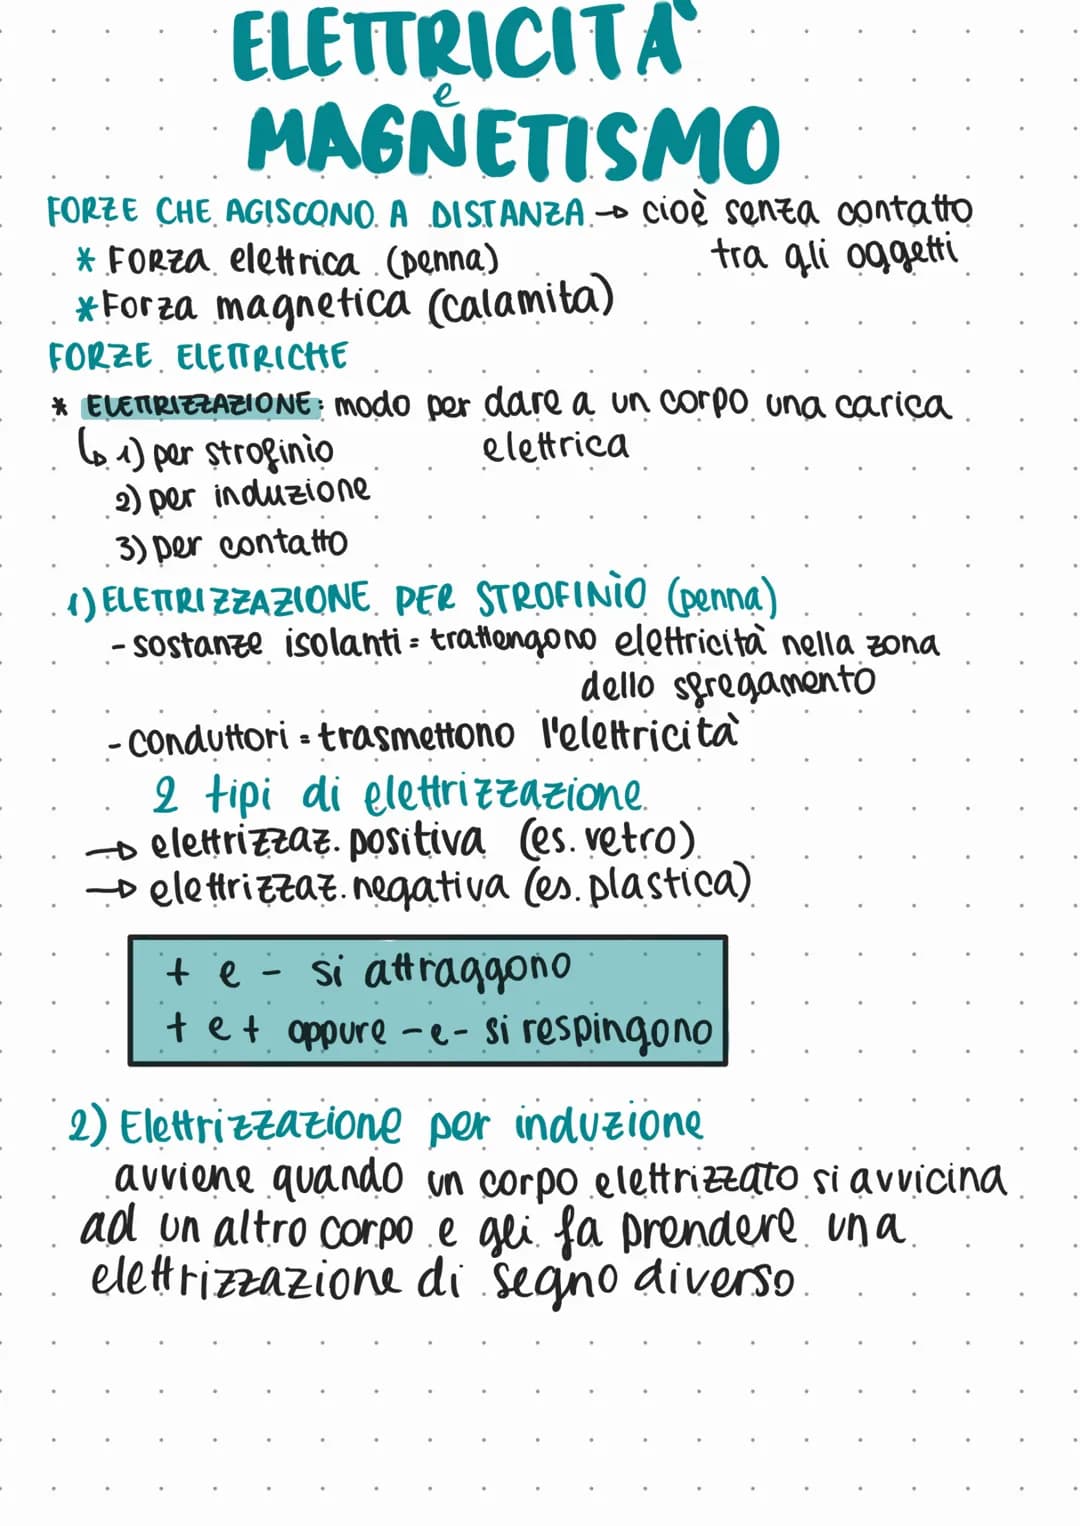 ELETTRICITÀ
e
MAGNETISMO
FORZE CHE AGISCONO A DISTANZA → cioè senza contatto
tra gli oggetti
* FORZA elettrica (penna)
* Forza magnetica (calamita)
FORZE ELETTRICHE
* ELETTRIZZAZIONE: modo per dare a un corpo una carica
elettrica
↳ 1) per strofinìo
2) per induzione
3) per contatto
1) ELETTRIZZAZIONE PER STROFINÌO (penna)
- sostanze isolanti = trattengono elettricità nella zona
dello sfregamento
- conduttori = trasmettono l'elettricità
2 tipi di elettrizzazione
→ elettrizzaz. positiva (es. vetro)
→ elettrizzaz. negativa (es. plastica)
+ e - si attraggono
+ e + oppure - e - si respingono
2) Elettrizzazione per induzione
avviene quando un corpo elettrizzato si avvicina
ad un altro corpo e gli fa prendere una
elettrizzazione di segno diverso